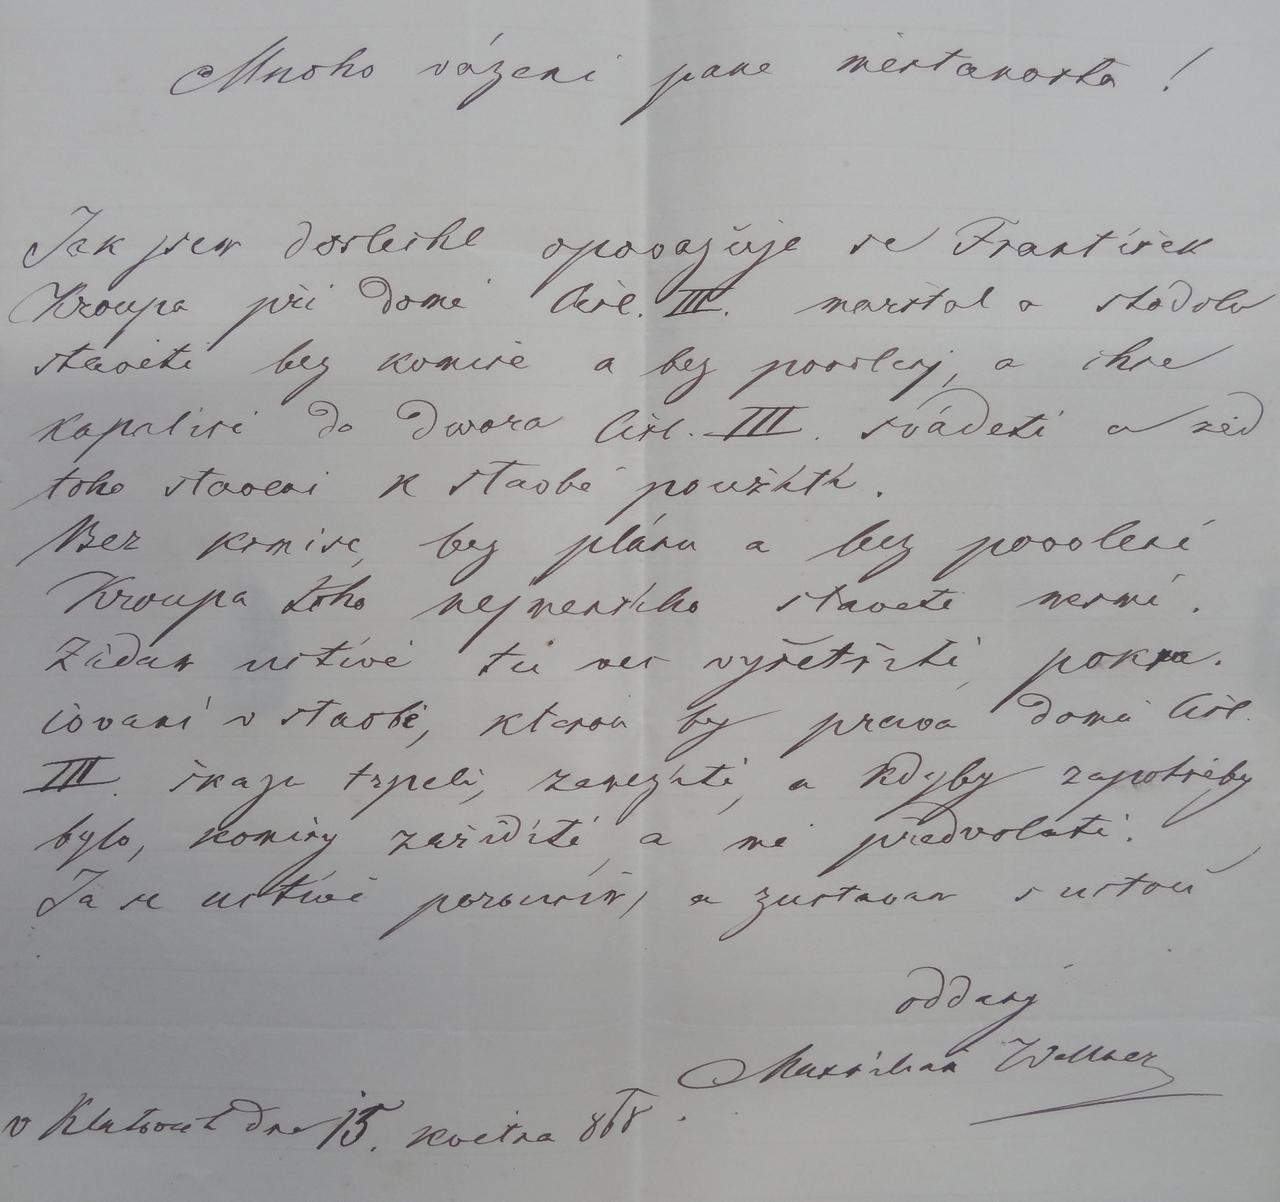 Mnoho vázeni pane mèstanosta!
Jak jsem doslechl opovazuje se František
Kroupa při domě čisl. III. marstal a stodolu
stavěti bez komise a bez povoleni, a chce
kapalisi do dvora čisl. III. sváděti a zed
toho staveni k stavbě použiti.
Bez komise, bez plánu a bez povoleni
Kroupa toho nejmensiho stavěti nesmi.
Žádam uctivě tu vec vyšetřiti, pokra.
čovani v stavbě, kterou by prava domu čisl.
III. škazu trpěli, zamezǐti, a kdyby zapotřeby
bylo, komisy zařiditi, a mě předvolati.
Ja se uctivě poroučim, a zustavam s uctou
oddaný
Maxmilian Wellner
v Klatovech dne 15. května 868.